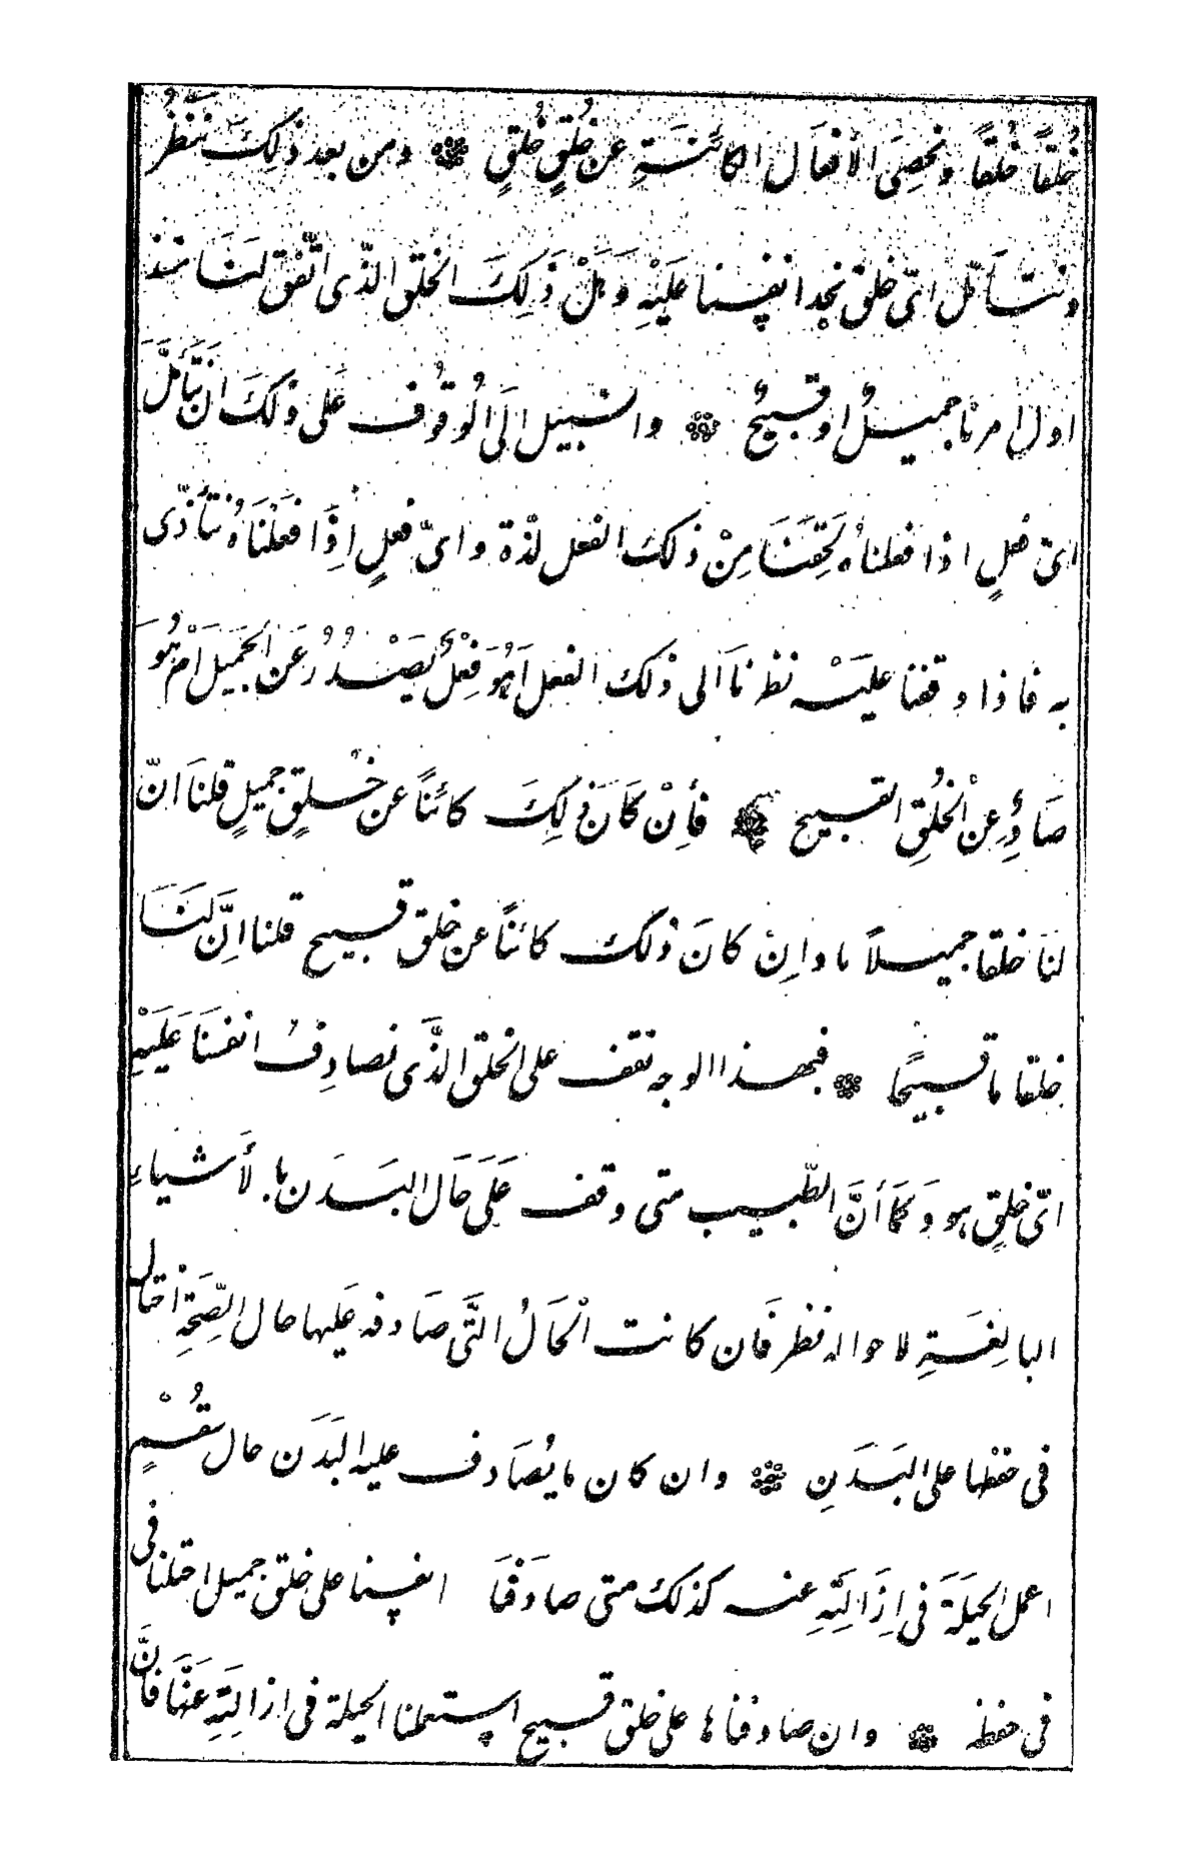 خُلقاً خُلقاً ونحصِیَ الأفعَال الکائنَةِ عن خُلقٍ خُلقٍ ومن بعد ذٰلِكَ نَنظُر
ونتَأمّل ایّ خلق نجد انفسنا عَلَیْهِ وَهَلْ ذَلِكَ الخلق الذّی اتّفق لَنَا منذ
اول امرنا جمیلٌ او قبیحٌ والسّبیل الَی الوُقوُف عَلی ذلكَ ان نَتَأَمَّلَ
ایّ فعلٍ اذا فعلناهُ لَحِقَنَا مِنْ ذلكَ الفعل لذّة وایّ فعلٍ اِذَا فَعَلْنَاهُ نتأذّی
به فاذا وقفنا علیَه نظرنَا الی ذلك الفعل اَهُوَ فِعْلٌ یَصْدُرُ عَن الجَمیل اَمْ هُوَ
صَادِرٌ عِن الْخُلُقِ القبیح فأِنْ کَانَ ذٰلِكَ کائنًا عن خُلقٍ جمیلٍ قلنَا انّ
لنَا خلقا جمیلاً ما وانْ کانَ ذٰلك کائنًا عن خلق قبیح قلنا اِنَّ لَنَا
خلقا ما قبیحًا فبهذا الوجه نقف علی الخلق الذَّی نصادِفُ انفسَنَا عَلَیْهِ
ایّ خلقٍ هو وَکَمَا أنَّ الطّبیب متی وقف عَلَی حَال البَدَن بالأَشیاءِ
البالِغَةِ لاحواله نظر فَان کانت الْحَالُ التَّی صَادفه عَلیها حال الصِّحَةِ احتال
فی حفظها علی البَدَنِ وان کان ما یُصَادف علیه البَدَن حال سُقْمٍ
اعمل الحیلَةَ فی اِزَالَتِهِ عنه کذلك متی صادَفْنَا انفسنا علی خلق جمیل احتلنا فی
فی حفظه وان صادفناها علی خلق قبیح استعملنا الحیلة فی ازالَتِهِ عَنَّا فَانَّ